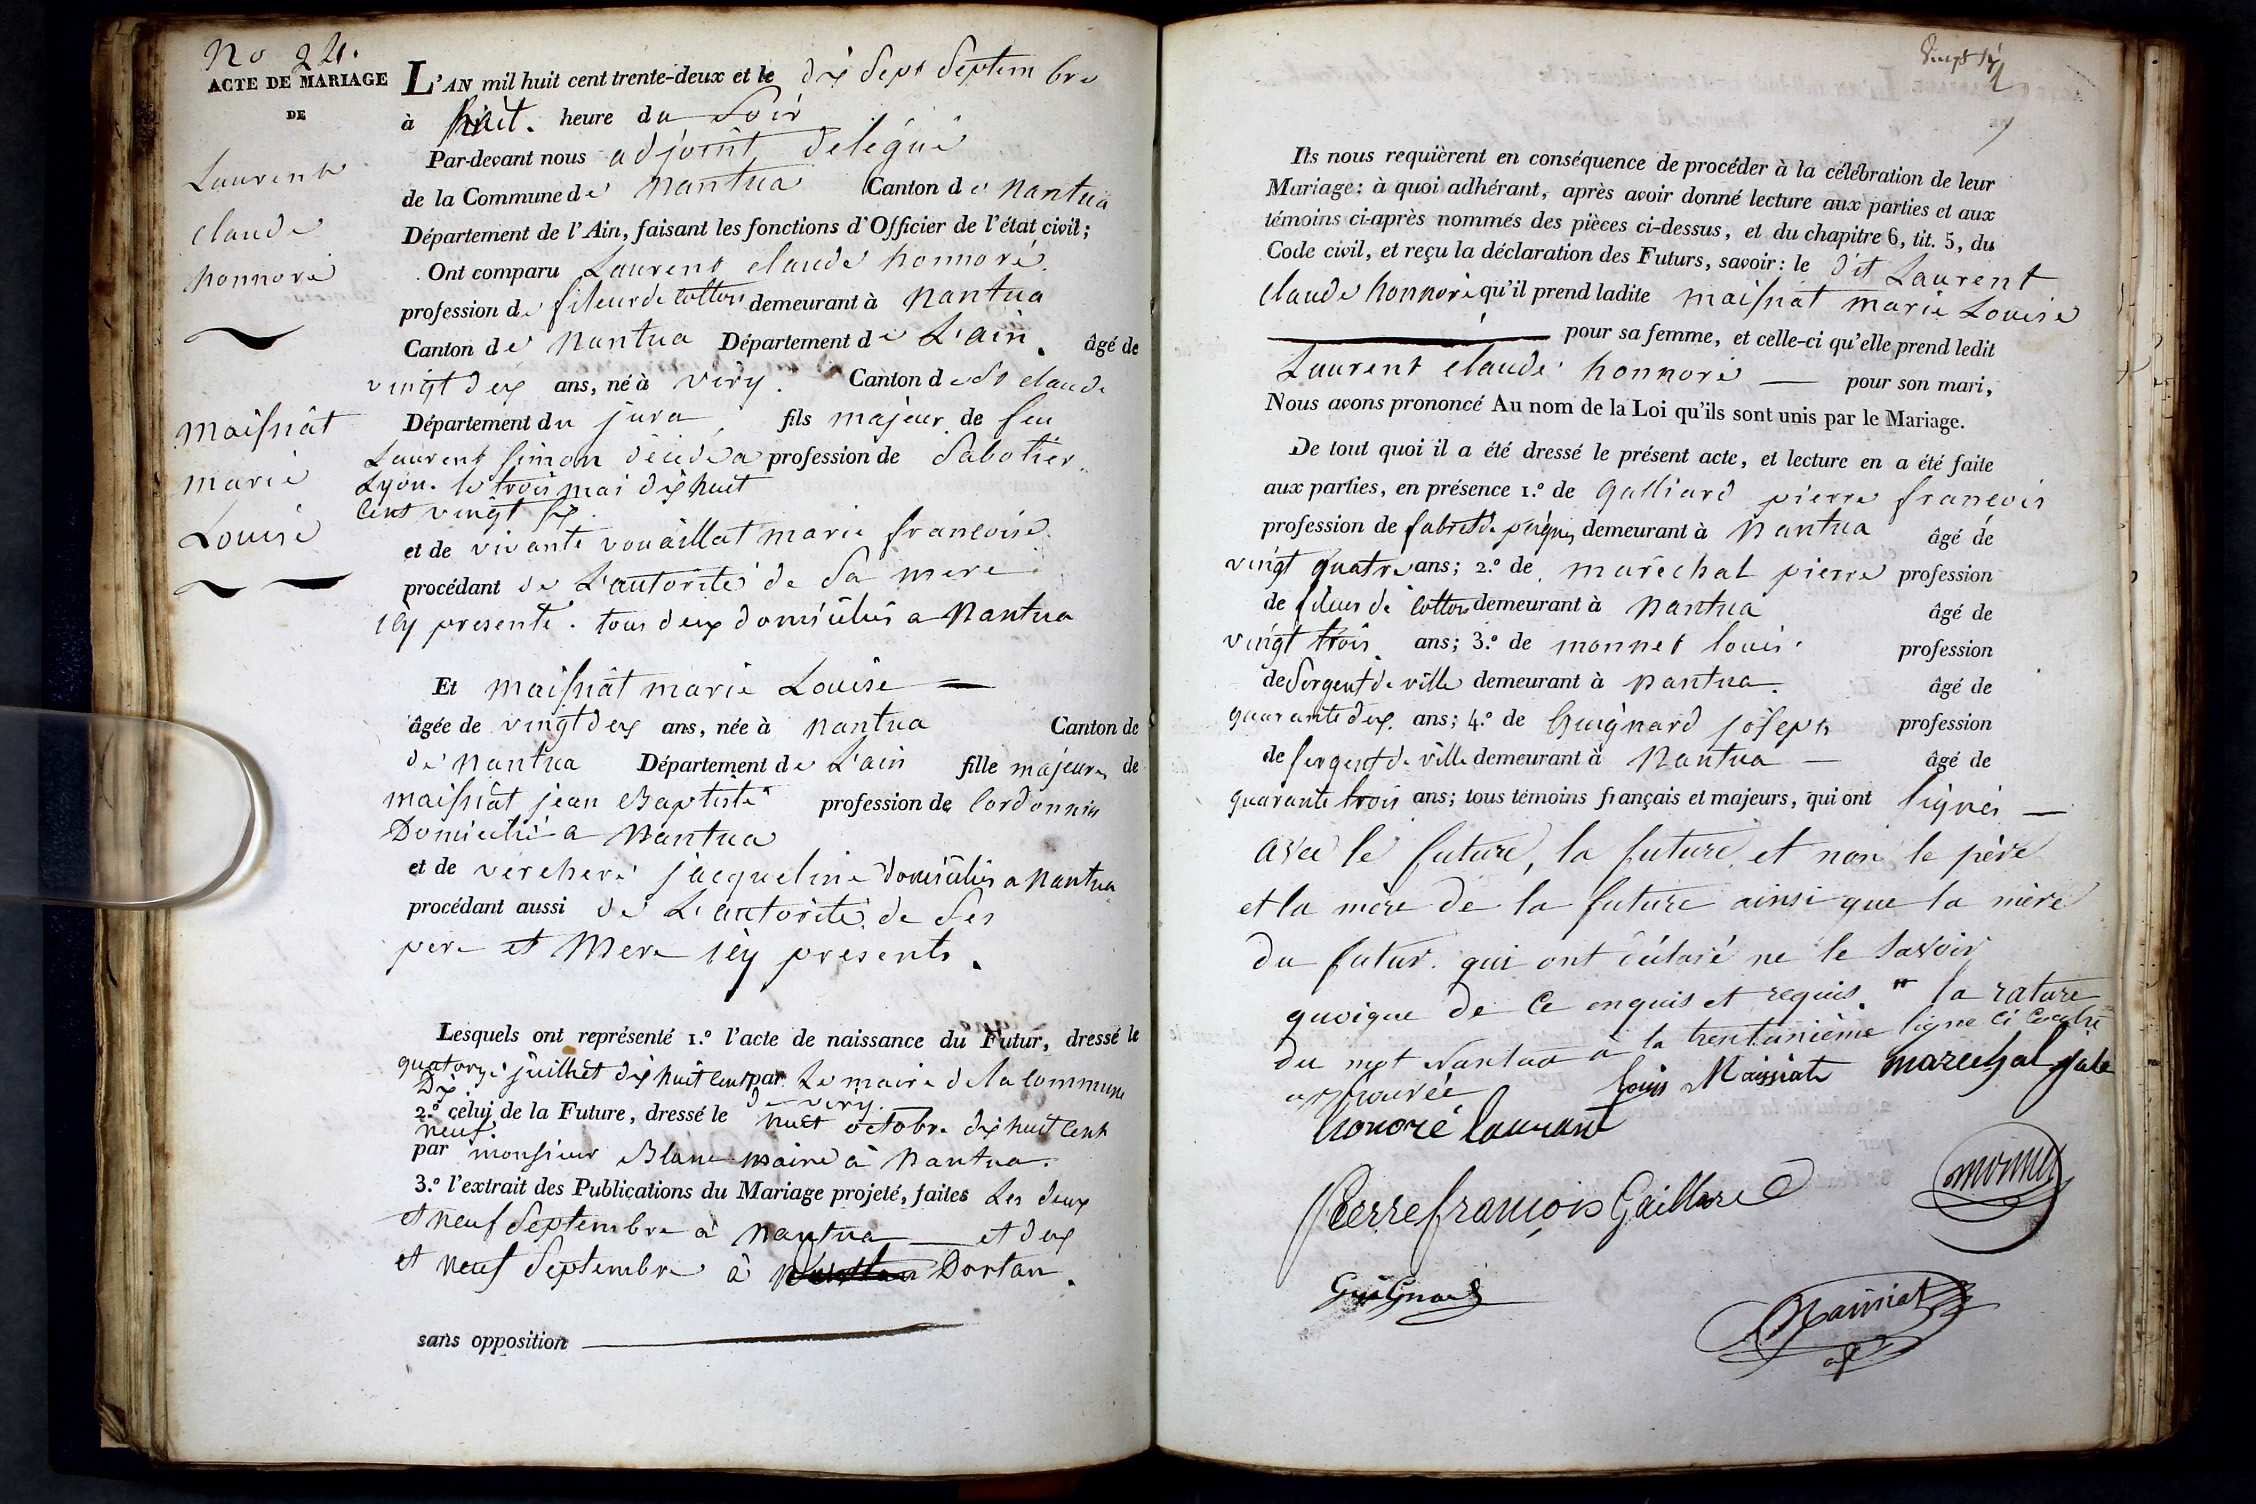 No 24.
ACTE DE MARIAGE
DE
Laurent
Claude
honnoré
maissiat
marie
Louise
L'AN mil huit cent trente-deux et le dix Sept Septembre
à huit. heure du Soir
Par-devant nous adjoint delégué
de la Commune de nantua Canton de nantua
Département de l'Ain, faisant les fonctions d'Officier de l'état civil;
Ont comparu Laurent claude honnoré.
profession de fileur de Cotton demeurant à nantua
Canton de Nantua Département de L'ain. âgé de
vingt deux ans, né à viry. Canton de St claude
Département du jura, fils majeur de feu
Laurent simon décédé a profession de Sabotier.
Lyon. le trois mai dix huit
Cent vingt six.
et de vivante vouaillat marie francoise
procédant de L'autorité de Sa mere
icy presente. tous deux domiciliés a Nantua
Et maissiat marie Louise
âgée de vingt deux ans, née à nantua Canton de
de nantua Département de L'ain fille majeure de
maissiat jean Baptiste profession de Cordonnier
Domicilié a Nantua
et de verchere jacqueline domiciliés a nantua
procédant aussi de L'autorité de Ses
pere et Mere icy presents.
Lesquels ont représenté 1.º l'acte de naissance du Futur, dressé le
quatorze juillet dix huit Cent par Le maire de la Commune
Dix de viry.
2.º celui de la Future, dressé le huit octobre dix huit Cent
neuf
par monsieur Blanc maire à Nantua.
3.º l'extrait des Publications du Mariage projeté, faites Les deux
et neuf Septembre à nantua et deux
et neuf Septembre à Dortan.
sans opposition
Ils nous requièrent en conséquence de procéder à la célébration de leur
Mariage: à quoi adhérant, après avoir donné lecture aux parties et aux
témoins ci-après nommés des pièces ci-dessus, et du chapitre 6, tit. 5, du
Code civil, et reçu la déclaration des Futurs, savoir: le dit Laurent
claude honnoré qu'il prend ladite maissiat marie Louise
pour sa femme, et celle-ci qu'elle prend ledit
Laurent claude honnoré pour son mari,
Nous avons prononcé Au nom de la Loi qu'ils sont unis par le Mariage.
De tout quoi il a été dressé le présent acte, et lecture en a été faite
aux parties, en présence 1.º de galliard pierre francois
profession de fabrt de peignes demeurant à Nantua âgé de
vingt quatre ans; 2.º de maréchal pierre profession
de fileur de Cotton demeurant à Nantua âgé de
vingt trois. ans; 3.º de monnet louis profession
de Sergent de ville demeurant à nantua. âgé de
quarante deux. ans; 4.º de Guignard joseph profession
de sergent de ville demeurant à Nantua âgé de
quarante trois ans; tous témoins français et majeurs, qui ont signés
avec le future, la future et non le père
et la mère de la future ainsi que la mère
du futur. qui ont déclaré ne le savoir
quoique de ce enquis et requis. la rature
du mot Nantua à la trentunième ligne ci contre
approuvée Louis Maissiat marechal
honoré laurant
Pierre francois Gaillard
monnet
Guignard
Maissiat